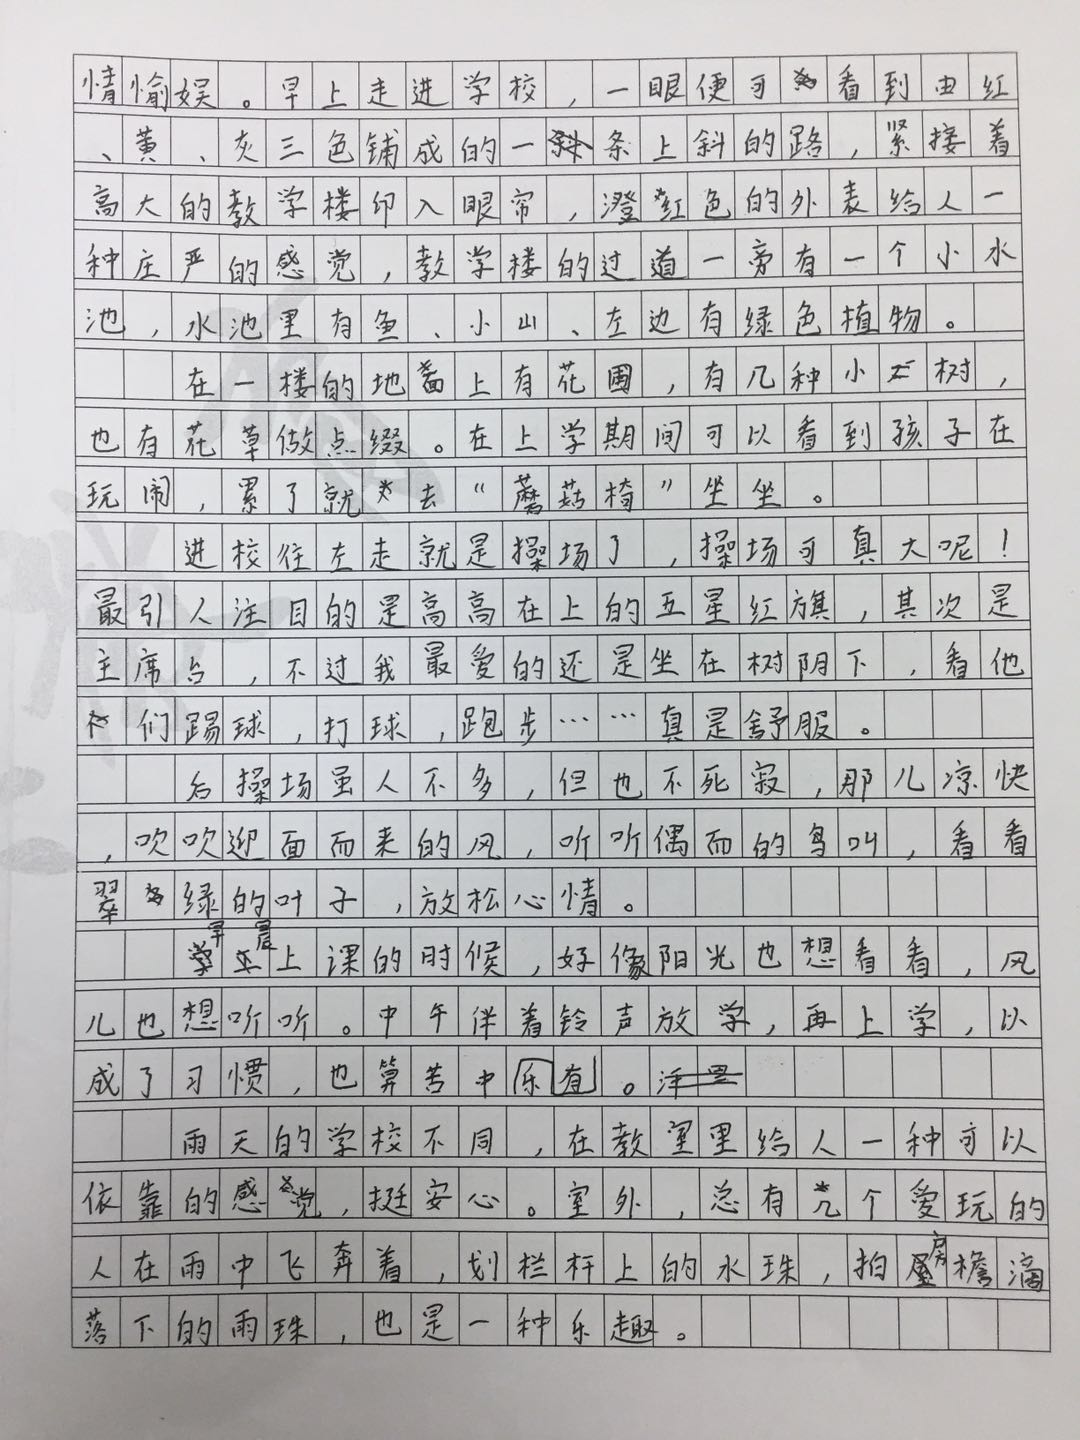 情愉娱。早上走进学校，一眼便可看到由红
、黄、灰三色铺成的一条上斜的路，紧接着
高大的教学楼印入眼帘，澄红色的外表给人一
种庄严的感觉，教学楼的过道一旁有一个小水
池，水池里有鱼、小山、左边有绿色植物。
在一楼的地面上有花圃，有几种小树，
也有花草做点缀。在上学期间可以看到孩子在
玩闹，累了就去“蘑菇椅”坐坐。
进校往左走就是操场了，操场可真大呢！
最引人注目的是高高在上的五星红旗，其次是
主席台，不过我最爱的还是坐在树阴下，看他
们踢球，打球，跑步……真是舒服。
后操场虽人不多，但也不死寂，那儿凉快
，吹吹迎面而来的风，听听偶而的鸟叫，看看
翠绿的叶子，放松心情。
早晨上课的时候，好像阳光也想看看，风
儿也想听听。中午伴着铃声放学，再上学，以
成了习惯，也算苦中乐有。
雨天的学校不同，在教室里给人一种可以
依靠的感觉，挺安心。室外，总有几个爱玩的
人在雨中飞奔着，划栏杆上的水珠，拍房檐滴
落下的雨珠，也是一种乐趣。